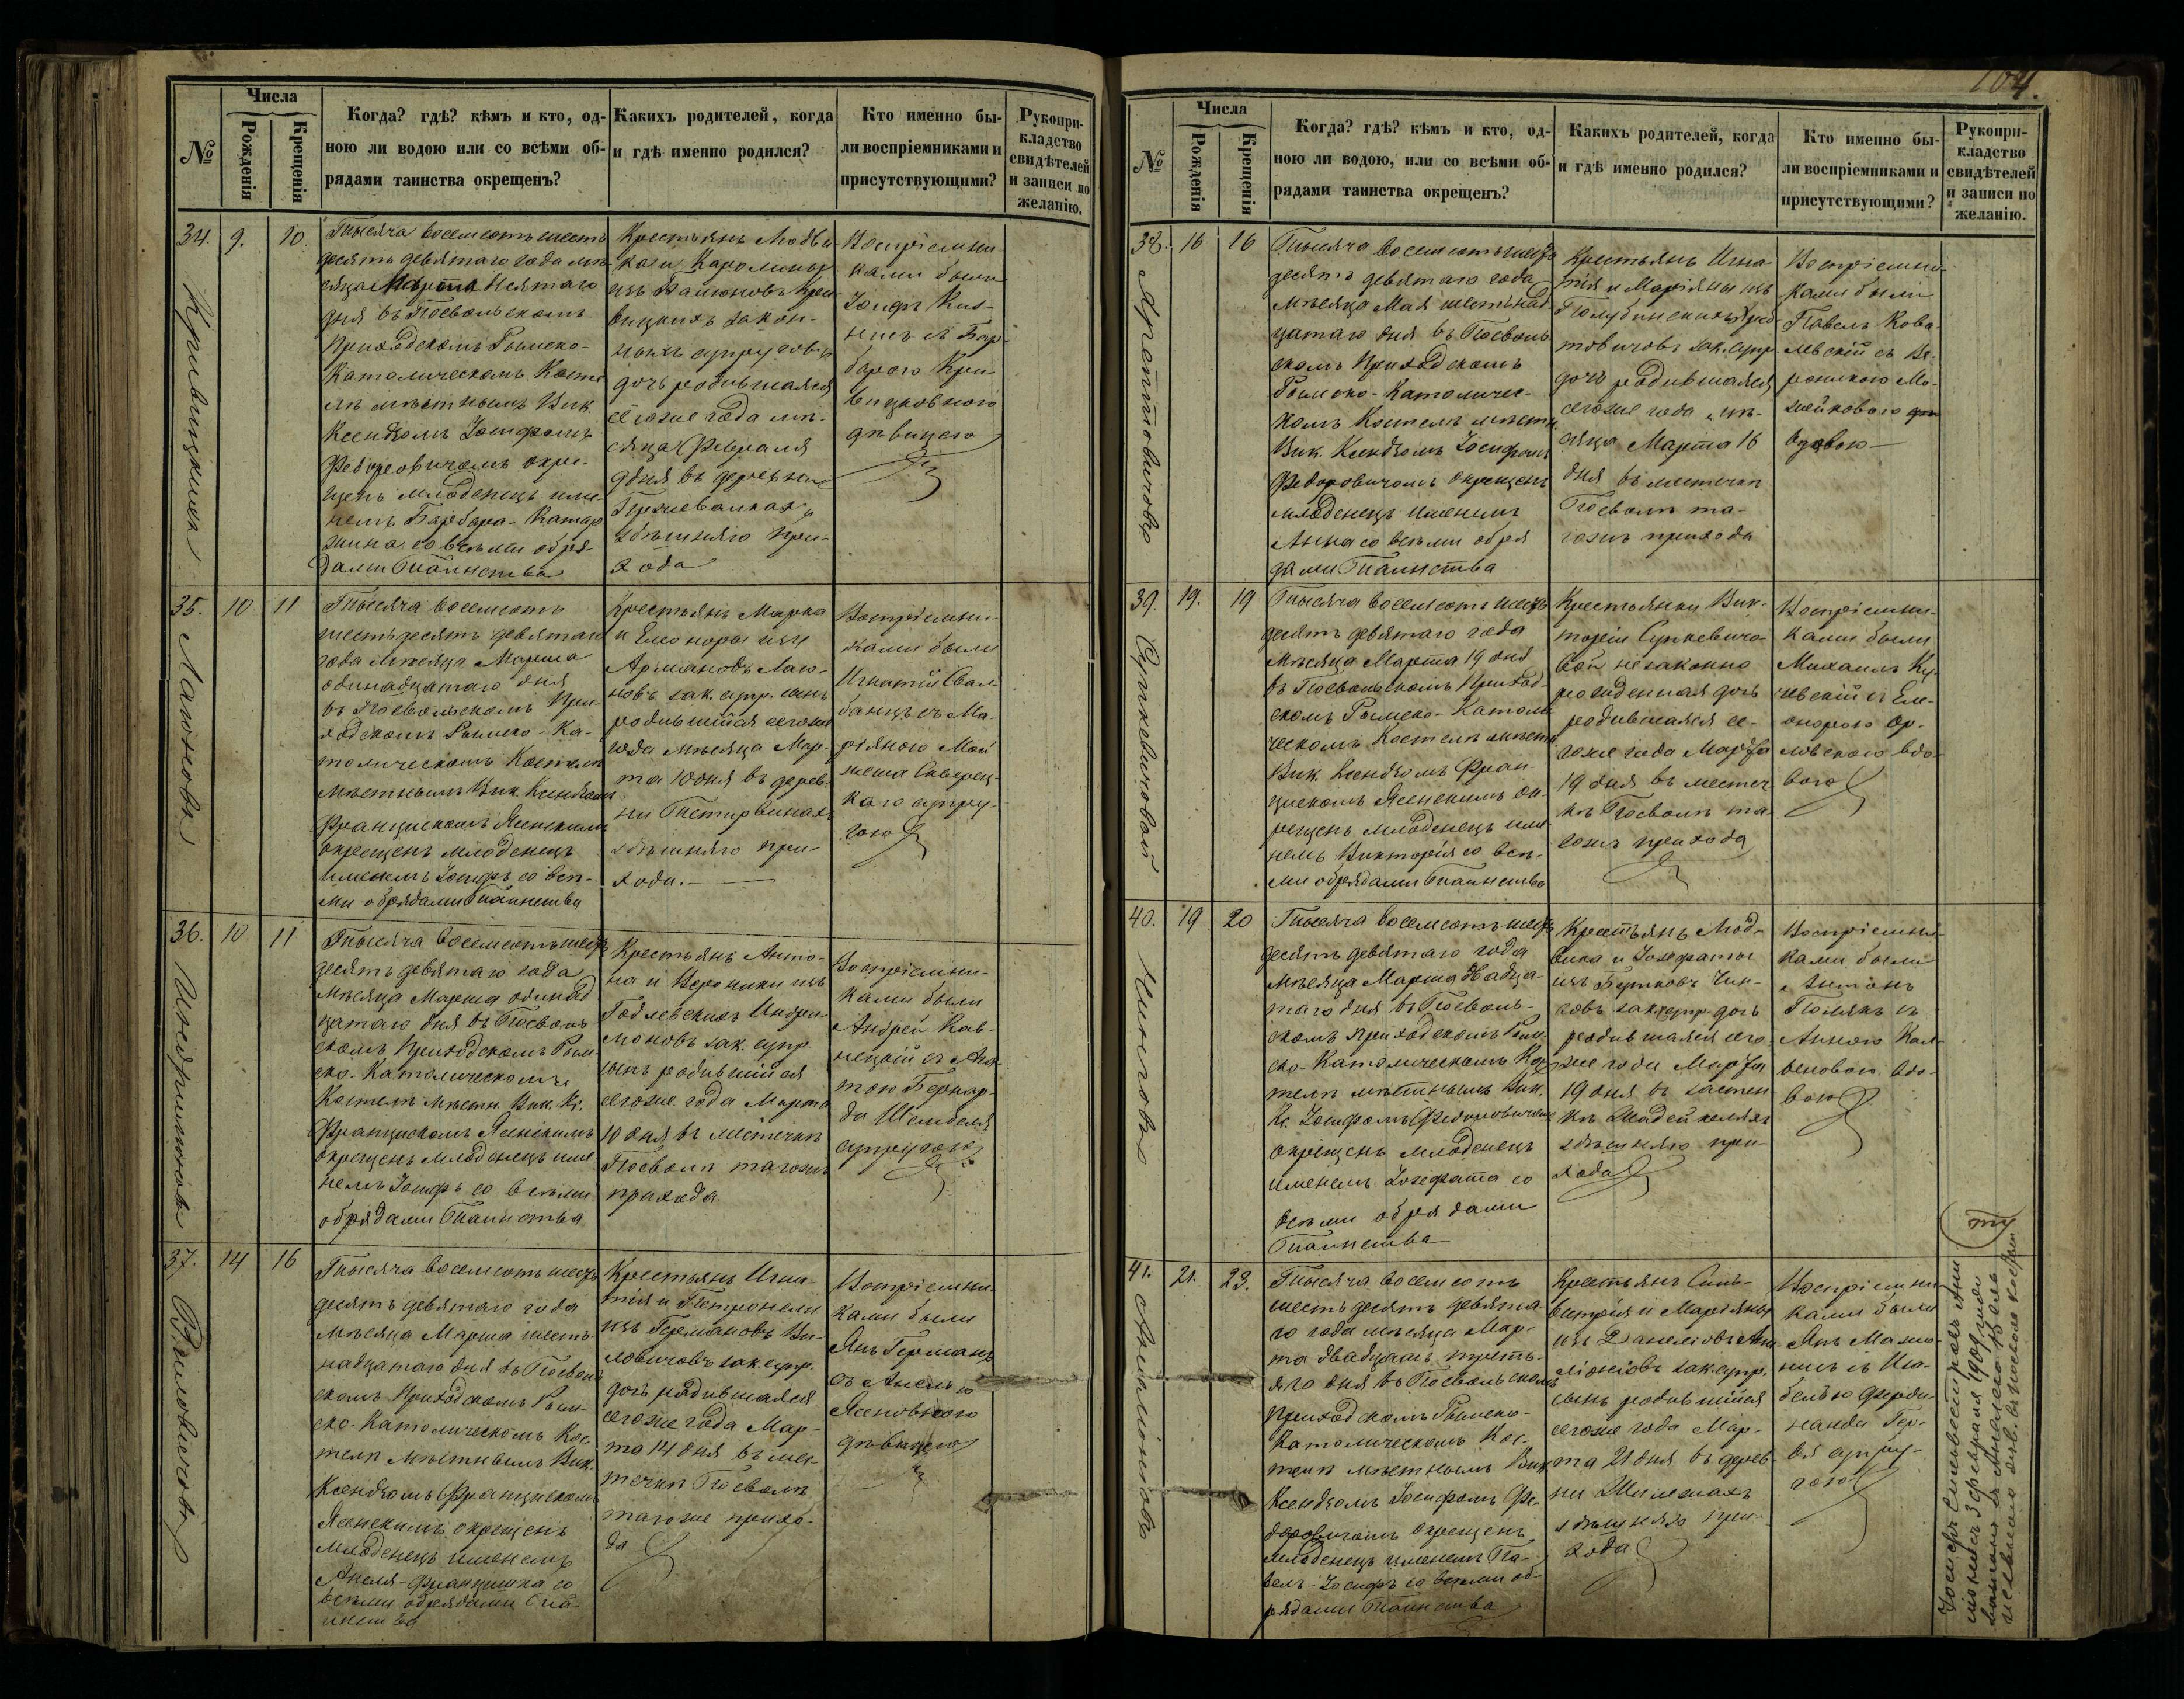 104.
№
Числа
Рожденія
Крещенія
Когда? гдѣ? кѣмъ и кто, од-
ною ли водою или со всѣми об-
рядами таинства окрещенъ?
Какихъ родителей, когда
и гдѣ именно родился?
Кто именно бы-
ли воспріемниками и
присутствующими?
Рукопри-
кладство
свидѣтелей
и записи по
желанію.
34.
Кривицкихъ
9.
10.
Тысяча восемьсотъ шесть
десятъ девятаго года мѣ-
сяца Марта десятаго
дня въ Посвольскомъ
Приходскомъ Римско-
Католическомъ Косте
лѣ мѣстнымъ Вик.
Ксендзомъ Іосифомъ
Федоровичомъ окре-
щенъ младенецъ име
немъ Барбара-Катар
жина со всѣми обря
дами Таинства
Крестьянъ Людви
каги Каролины
изъ Кри
вицкихъ закон-
ныхъ супруговъ
дочь родившаяся
сегоже года мѣ-
сяца Февраля
9 дня въ деревнѣ
здѣшняго при-
хода
Воспріемни-
ками были
Іосифъ
съ Бар-
барою Кри
вицковною
дѣвицею
35.
Лаюновъ
10
11
Тысяча восемсотъ
шестьдесятъ девятаго
года мѣсяца Марта
одинадцатаго дня
въ Посвольскомъ При-
ходскомъ Римско-Ка-
толическомъ Костелѣ
мѣстнымъ Вик. Ксендзомъ
Францискомъ Ясенскимъ
окрещенъ младенецъ
именемъ Іосифъ со всѣ-
ми обрядами Таинства
Крестьянъ Марка
и Елеоноры изъ
Армановъ Лаю-
новъ зак. супр. сынъ
родившійся сегоже
года мѣсяца Мар-
та 10 дня въ дерев-
ни
здѣшняго при-
хода.
Воспріемни-
ками были
Игнатій
съ Ма-
ріяною
супру-
гою
36.
Индримоновъ
10
11
Тысяча восемсотъ шесть
десятъ девятаго года
мѣсяца Марта одинад
цатаго дня въ Посволь-
скомъ Приходскомъ Рим-
ско-Католическомъ
Костелѣ мѣстн. Вик. Кс.
Францискомъ Ясенскимъ
окрещенъ младенецъ име
немъ Іосифъ со всѣми
обрядами Таинства
Крестьянъ Анто-
на и Вероники изъ
Годлевскихъ Индри-
моновъ зак. супр.
сынъ родившійся
сегоже года Марта
10 дня въ мѣстечкѣ
Посволи тагожъ
прихода
Воспріемни-
ками были
Андрей
съ
тою Бернар-
да
супругою
37.
Виловичовъ
14
16
Тысяча восемсотъ шесть
десятъ девятаго года
мѣсяца Марта шест-
надцатаго дня въ Посволь
скомъ Приходскомъ Рим-
ско-Католическомъ Кос
телѣ мѣстнымъ Вик.
Ксендзомъ Францискомъ
Ясенскимъ окрещенъ
младенецъ именемъ
Анеля-Францишка со
всѣми обрядами Таи-
нства
Крестьянъ Игна-
тія и Петронели
изъ Германовъ Ви-
ловичовъ зак. супр.
дочь родившаяся
сегоже года Мар-
та 14 дня въ мѣс-
течкѣ Посволи
тагоже прихо-
да
Воспріемни-
ками были
Янъ Германъ
съ Анелью
Ясеновною
дѣвицею
№
Числа
Рожденія
Крещенія
Когда? гдѣ? кѣмъ и кто, од-
ною ли водою, или со всѣми об-
рядами таинства окрещенъ?
Какихъ родителей, когда
и гдѣ именно родился?
Кто именно бы-
ли воспріемниками и
присутствующими?
Рукопри-
кладство
свидѣтелей
и записи по
желанію.
38.
16
16
Тысяча восемсотъ шесть
десятъ девятаго года
мѣсяца Мая шестнад
цатаго дня въ Посволь
скомъ Приходскомъ
Римско-Католичес-
комъ Костелѣ мѣстн.
Вик. Ксендзомъ Іосифомъ
Федоровичомъ окрещенъ
младенецъ именемъ
Анна со всѣми обря
дами Таинства
Крестьянъ Игна-
тія и Маріяны изъ
Голубинскихъ
товичовъ зак. супр.
дочь родившаяся
сегоже года мѣ-
сяца Марта 16
дня въ мѣстечкѣ
Посволи та-
гожъ прихода
Воспріемни-
ками были
Павелъ Кова-
левскій съ Ве-
роникою
вдовою
39.
Суткевичовой
19.
19
Тысяча восемсотъ шесть
десятъ девятаго года
мѣсяца Марта 19 дня
въ Посвольскомъ Приход-
скомъ Римско-Католи
ческомъ Костелѣ мѣстн.
Вик. Ксендзомъ Фран-
цискомъ Ясенскимъ ок-
рещенъ младенецъ име
немъ Викторія со всѣ-
ми обрядами Таинства
Крестьянки Вик-
торіи Суткевичо-
вой незаконно
рожденная дочь
родившаяся се-
гоже года Марта
19 дня въ местеч
кѣ Посволи та-
гожъ прихода
Воспріемни-
ками были
Михаилъ Ку-
чевскій съ Еле-
онорою Ор-
ловскою вдо-
вою
40.
Чинговъ
19
20
Тысяча восемсотъ шесть
десятъ девятаго года
мѣсяца Марта двадца-
таго дня въ Посволь-
скомъ Приходскомъ Рим.
ско-Католическомъ Кос
телѣ мѣстнымъ Вик.
Кс. Іосифомъ Федоровичомъ
окрещенъ младенецъ
именемъ Іозефата со
всѣми обрядами
Таинства
Крестьянъ Люд-
вика и Іозефаты
изъ Бутковъ Чин-
говъ зак. супр. дочь
родившаяся сего
же года Марта
19 дня въ застен
кѣ
здѣшняго при-
хода
Воспріемни-
ками были
Антонъ
Полякъ съ
Анною
вдо-
вою
41.
21.
23.
Тысяча восемсотъ
шестьдесятъ девята-
го года мѣсяца Мар-
та двадцать треть-
яго дня въ Посвольскомъ
Приходскомъ Римско-
Католическомъ Кос-
телѣ мѣстнымъ Вик.
Ксендзомъ Іосифомъ Фе-
доровичомъ окрещенъ
младенецъ именемъ Па-
велъ-Іосифъ со всѣми об-
рядами Таинства
Крестьянъ Силь-
вестрія и Маріяны
изъ
зак. супр.
сынъ родившійся
сегоже года Мар-
та 21 дня въ дерев-
ни
здѣшняго при-
хода
Воспріемни-
ками были
Янъ
съ Иза-
белью Ферди-
нанда
супру-
гою